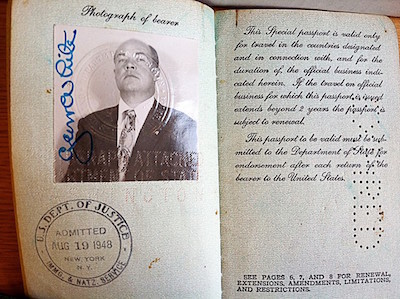 Photograph of bearer
U.S. DEPT. OF JUSTICE
ADMITTED
AUG 19 1948
NEW YORK
N.Y.
IMMG. & NATZ. SERVICE
This Special passport is valid only
for travel in the countries designated
and in connection with, and for the
duration of, the official business indi-
cated herein. If the travel on official
business for which this passport is issued
extends beyond 2 years the passport is
subject to renewal.
This passport to be valid must be sub-
mitted to the Department of State for
endorsement after each return of the
bearer to the United States.
SEE PAGES 6, 7, AND 8 FOR RENEWAL,
EXTENSIONS, AMENDMENTS, LIMITATIONS,
AND RESTRICTIONS.